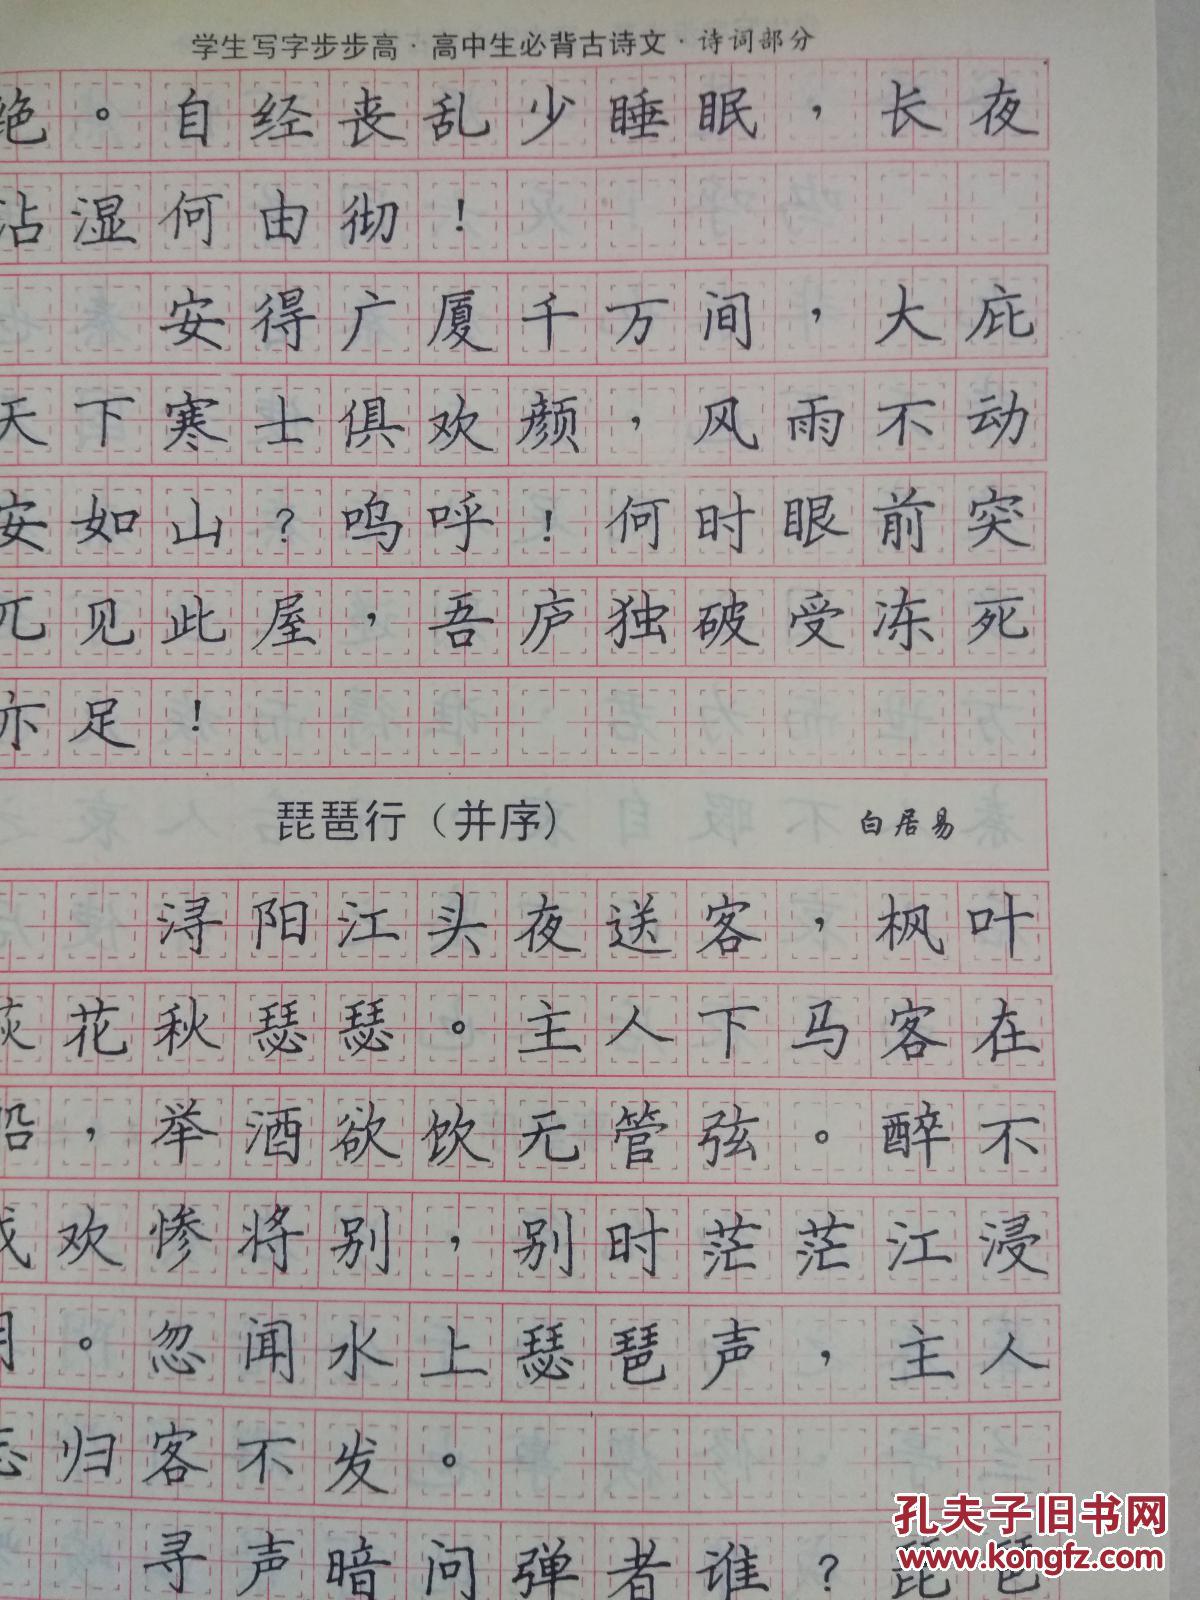 学生写字步步高·高中生必背古诗文·诗词部分
绝。自经丧乱少睡眠，长夜
沾湿何由彻！
安得广厦千万间，大庇
天下寒士俱欢颜，风雨不动
安如山？呜呼！何时眼前突
兀见此屋，吾庐独破受冻死
亦足！
琵琶行（并序） 白居易
浔阳江头夜送客，枫叶
荻花秋瑟瑟。主人下马客在
船，举酒欲饮无管弦。醉不
成欢惨将别，别时茫茫江浸
月。忽闻水上瑟琶声，主人
忘归客不发。
寻声暗问弹者谁？琵琶
孔夫子旧书网
www.kongfz.com